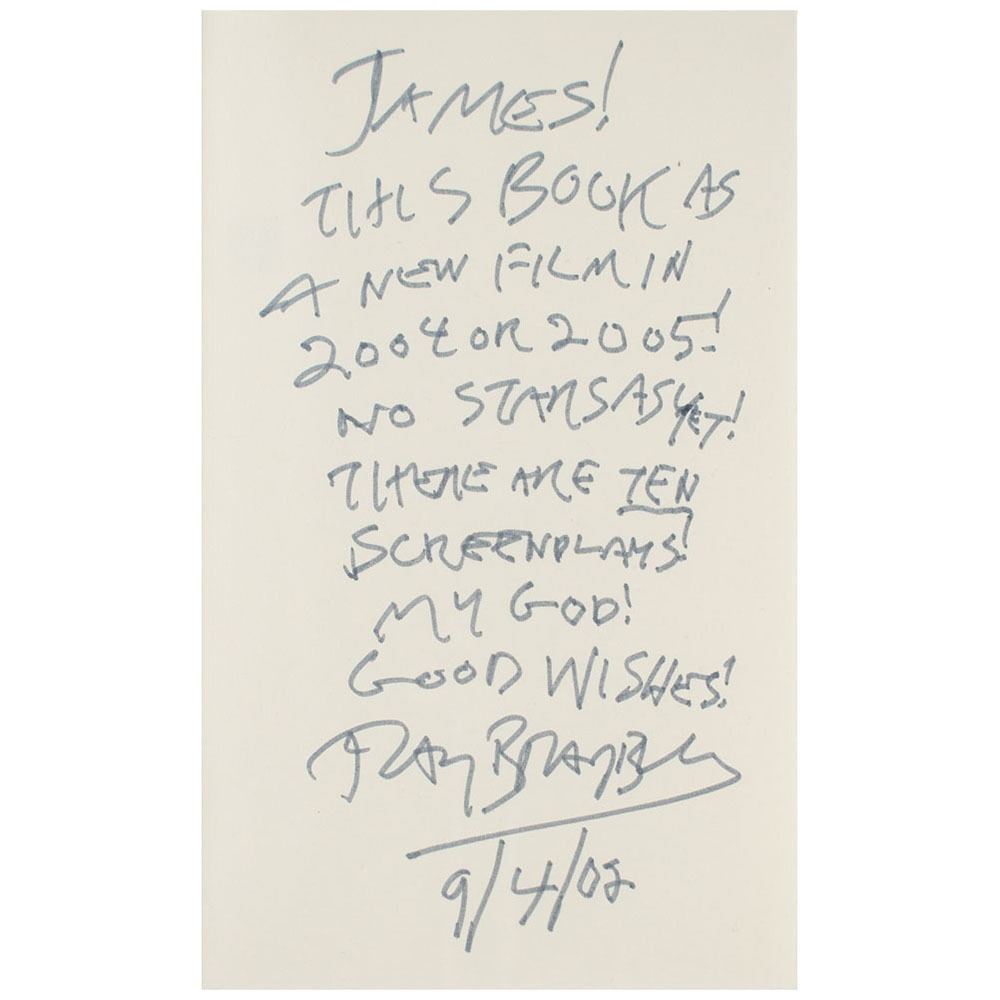 JAMES!
THIS BOOK AS
A NEW FILM IN
2004 OR 2005!
NO STARS AS YET!
THERE ARE TEN
SCREENPLAYS!
MY GOD!
GOOD WISHES!
RAY BRADBURY
9/4/02